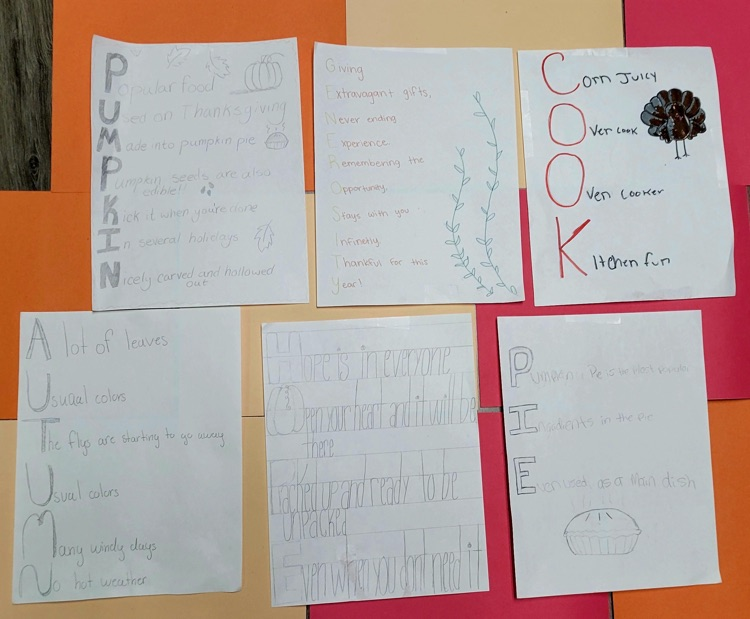 Popular food
Used on Thanksgiving
Made into pumpkin pie
Pumpkin seeds are also
edible!!
Kick it when you're done
In several holidays
Nicely carved and hollowed
out
Giving
Extravagant gifts,
Never ending
Experience.
Remembering the
Opportunity.
Stays with you
Infinetly.
Thankful for this
Year!
Corn Juicy
Over cook
Oven cooker
Kitchen fun
A lot of leaves
Usuaul colors
The flys are starting to go away
Usual colors
Many windy days
No hot weather
Hope is in everyone
Open your heart and it will be
there
Packed up and ready to be
unpacked
Even when you dont need it
Pie is the best
in the pie
Even used as a Main dish